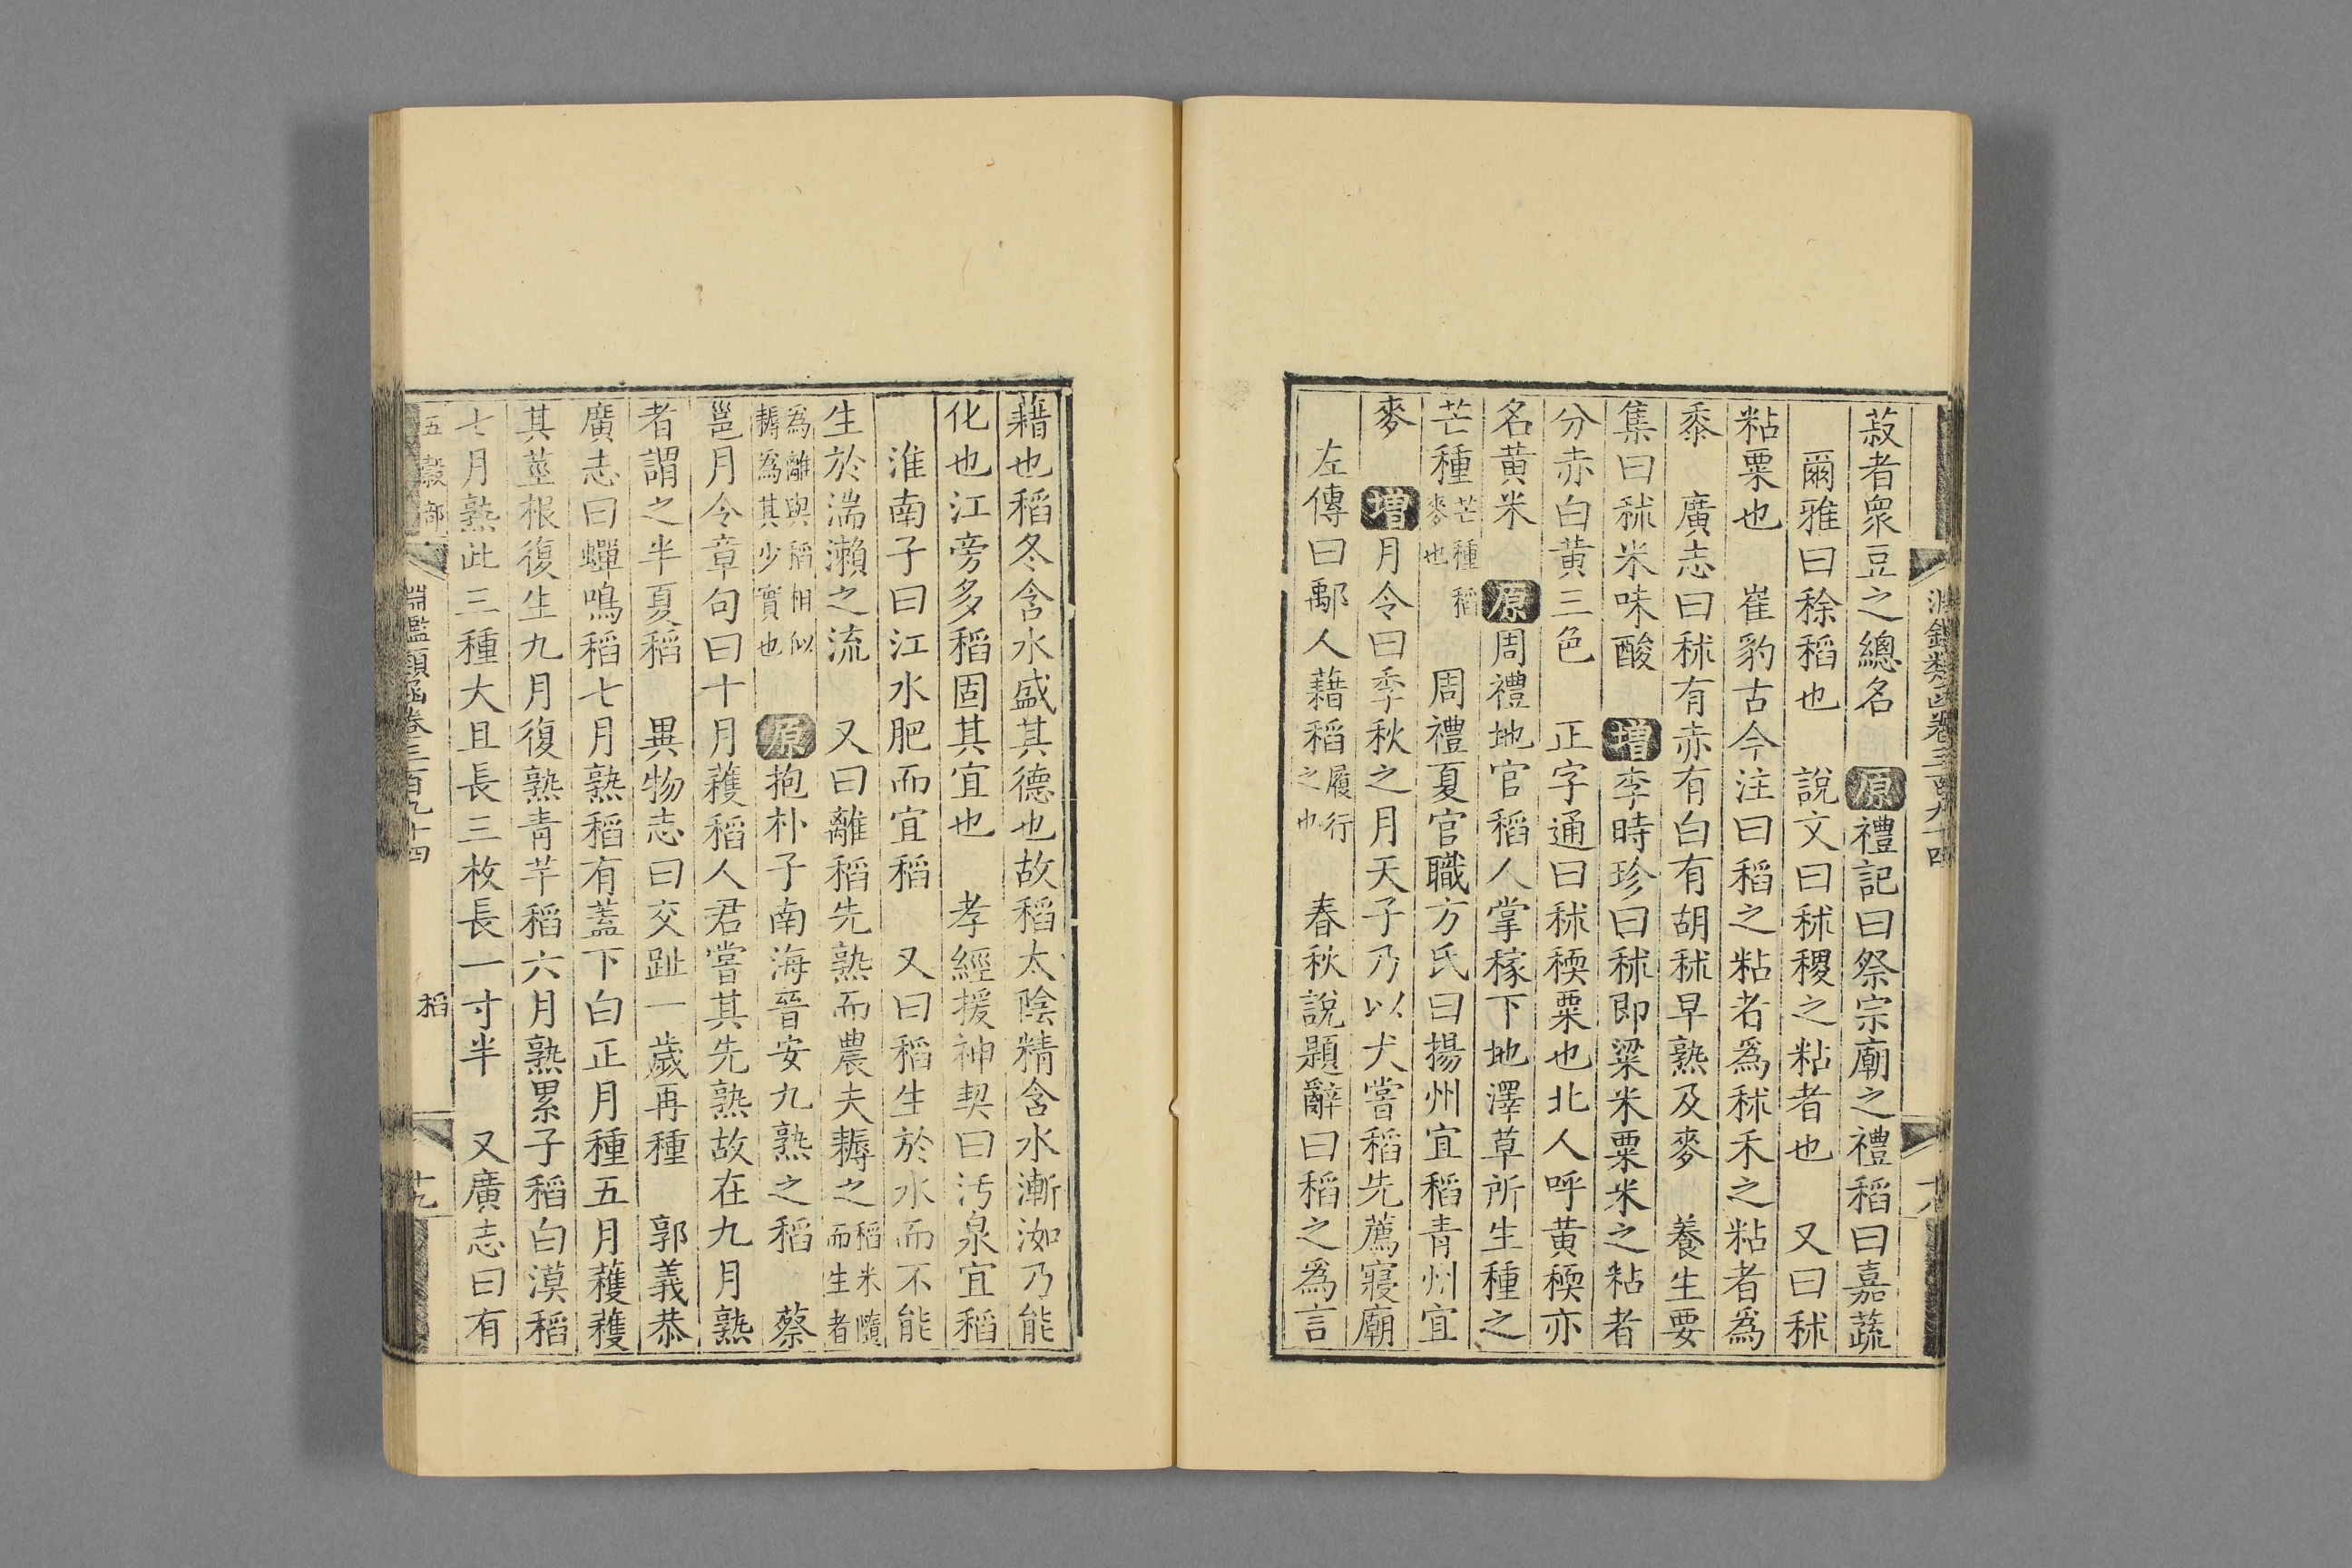 淵鑑類函卷三百九十四
菽者眾豆之總名 原禮記曰祭宗廟之禮稻曰嘉蔬
爾雅曰稌稻也 說文曰秫稷之粘者也 又曰秫
粘粟也 崔豹古今注曰稻之粘者爲秫禾之粘者爲
黍 廣志曰秫有赤有白有胡秫早熟及麥 養生要
集曰秫米味酸 增李時珍曰秫即粱米粟米之粘者
分赤白黃三色 正字通曰秫稬粟也北人呼黃稬亦
名黃米 原周禮地官稻人掌稼下地澤草所生種之
芒種芒種稻麥也 周禮夏官職方氏曰揚州宜稻青州宜
麥 增月令曰季秋之月天子乃以犬嘗稻先薦寢廟
左傳曰鄅人藉稻履行之也 春秋說題辭曰稻之爲言
藉也稻冬含水盛其德也故稻太陰精含水漸洳乃能
化也江旁多稻固其宜也 孝經援神契曰汚泉宜稻
淮南子曰江水肥而宜稻 又曰稻生於水而不能
生於湍瀨之流 又曰離稻先熟而農夫耨之稻米隨而生者
為離與稻相似耨為其少實也 原抱朴子南海晉安九熟之稻 蔡
邕月令章句曰十月穫稻人君嘗其先熟故在九月熟
者謂之半夏稻 異物志曰交趾一歲再種 郭義恭
廣志曰蟬鳴稻七月熟稻有蓋下白正月種五月穫穫
其莖根復生九月復熟青芋稻六月熟累子稻白漠稻
七月熟此三種大且長三枚長一寸半 又廣志曰有
五穀部
淵鑑類函卷三百九十四
稻